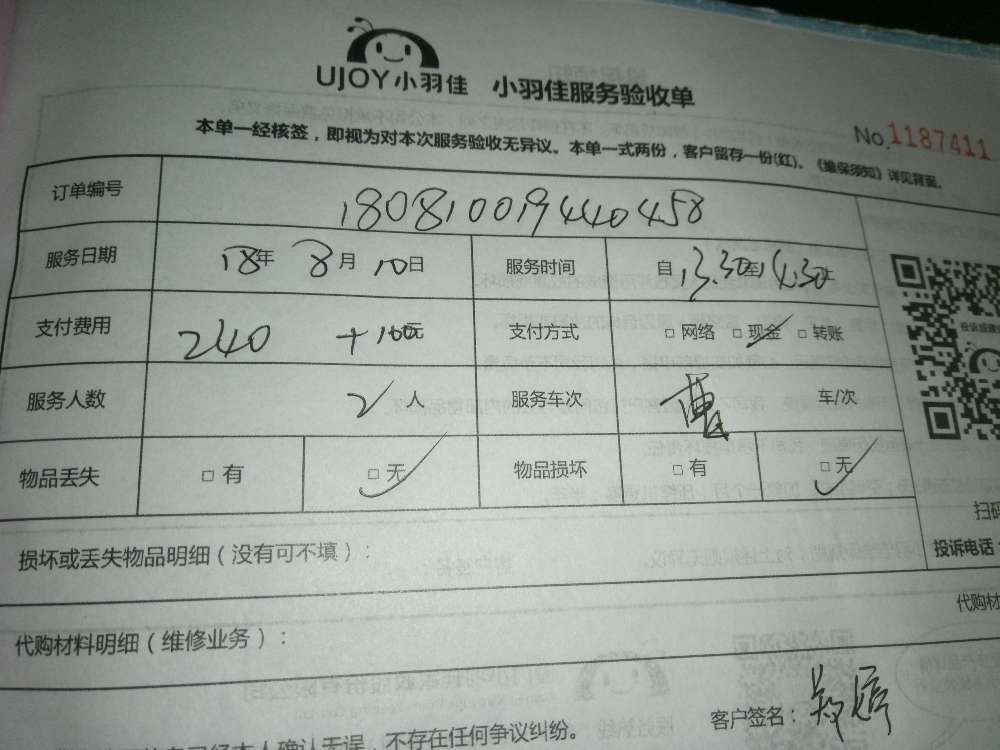 UJOY小羽佳 小羽佳服务验收单
No.1187411
本单一经核签，即视为对本次服务验收无异议。本单一式两份，客户留存一份(红)。《维保须知》详见背面。
订单编号 180810019440458
服务日期 18年 8月 10日 服务时间 自13.30至14.30止
支付费用 240 +100元 支付方式 □网络 □现金 □转账
服务人数 2人 服务车次 车/次
物品丢失 □有 □无 物品损坏 □有 □无
扫码
投诉电话：
损坏或丢失物品明细（没有可不填）：
代购材
代购材料明细（维修业务）：
客户签名：
本人确认无误，不存在任何争议纠纷。